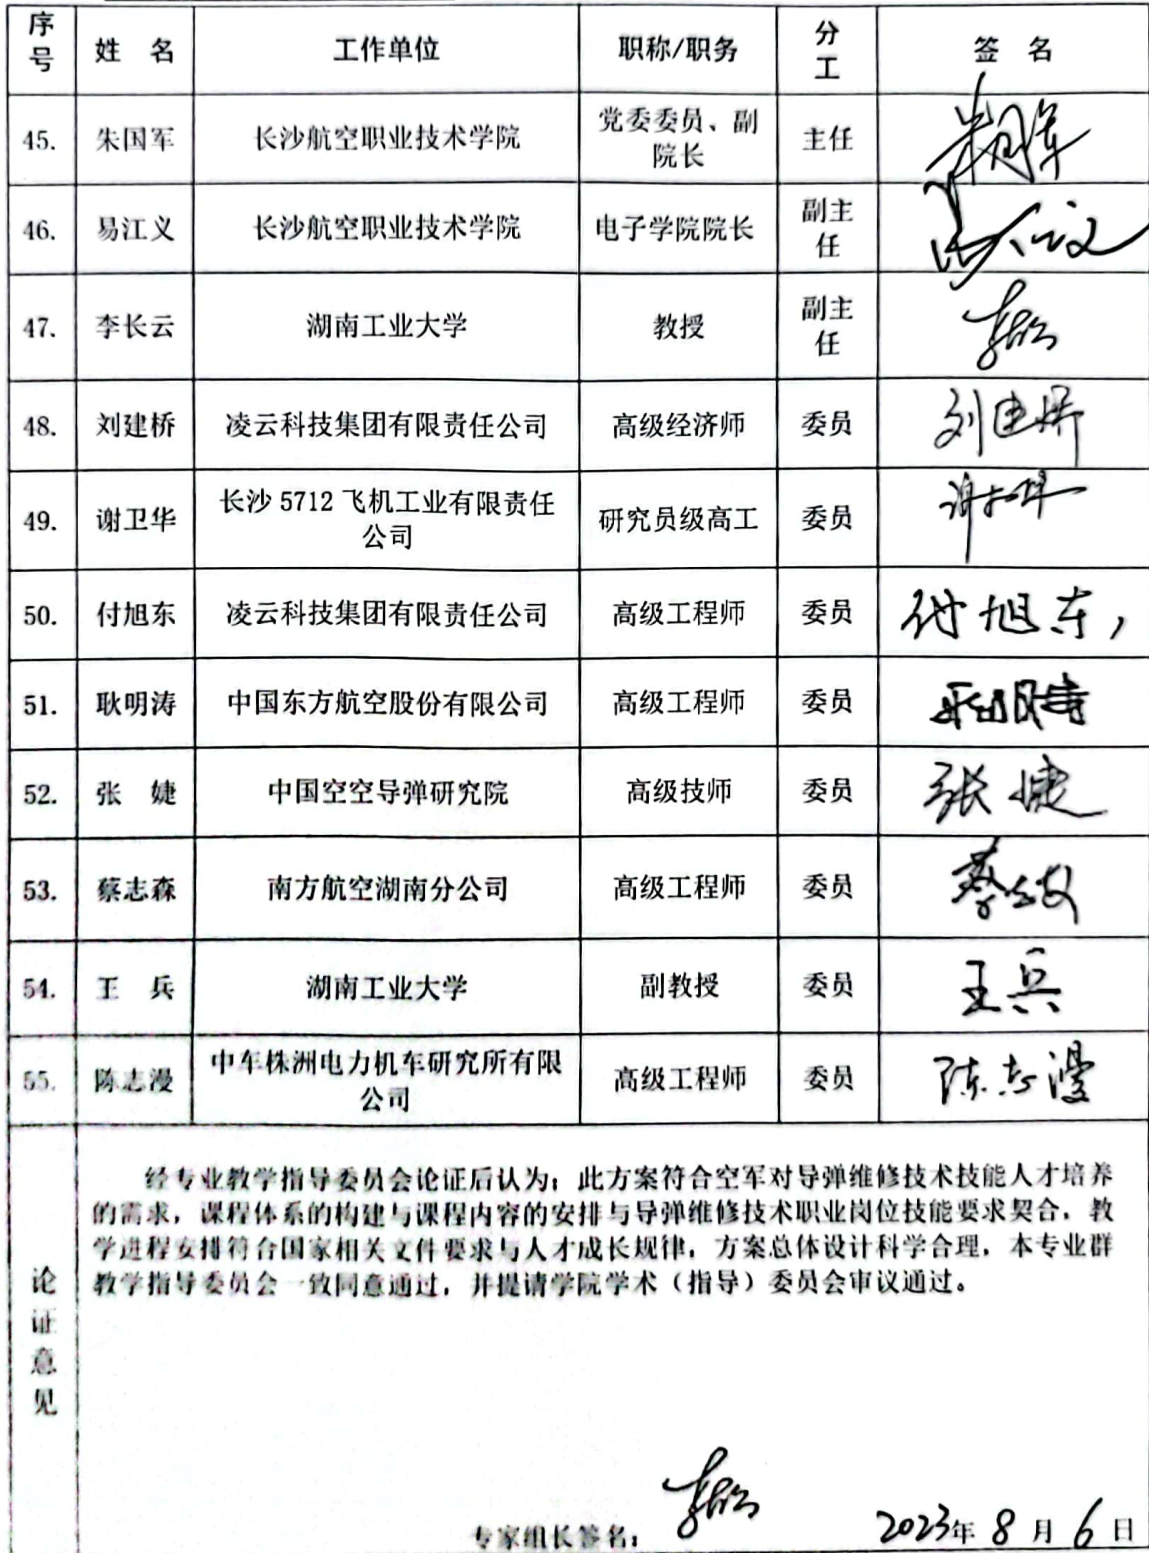 序号 姓 名 工作单位 职称/职务 分工 签 名
45. 朱国军 长沙航空职业技术学院 党委委员、副院长 主任 朱国军
46. 易江义 长沙航空职业技术学院 电子学院院长 副主任
47. 李长云 湖南工业大学 教授 副主任 李长云
48. 刘建桥 凌云科技集团有限责任公司 高级经济师 委员 刘建桥
49. 谢卫华 长沙5712飞机工业有限责任公司 研究员级高工 委员 谢卫华
50. 付旭东 凌云科技集团有限责任公司 高级工程师 委员 付旭东
51. 耿明涛 中国东方航空股份有限公司 高级工程师 委员 耿明涛
52. 张 婕 中国空空导弹研究院 高级技师 委员 张婕
53. 蔡志森 南方航空湖南分公司 高级工程师 委员
54. 王 兵 湖南工业大学 副教授 委员 王兵
55. 陈志漫 中车株洲电力机车研究所有限公司 高级工程师 委员 陈志漫
论证意见
经专业教学指导委员会论证后认为：此方案符合空军对导弹维修技术技能人才培养
的需求，课程体系的构建与课程内容的安排与导弹维修技术职业岗位技能要求契合，教
学进程安排符合国家相关文件要求与人才成长规律，方案总体设计科学合理，本专业群
教学指导委员会一致同意通过，并提请学院学术（指导）委员会审议通过。
专家组长签名： 李长云 2023年 8 月 6 日